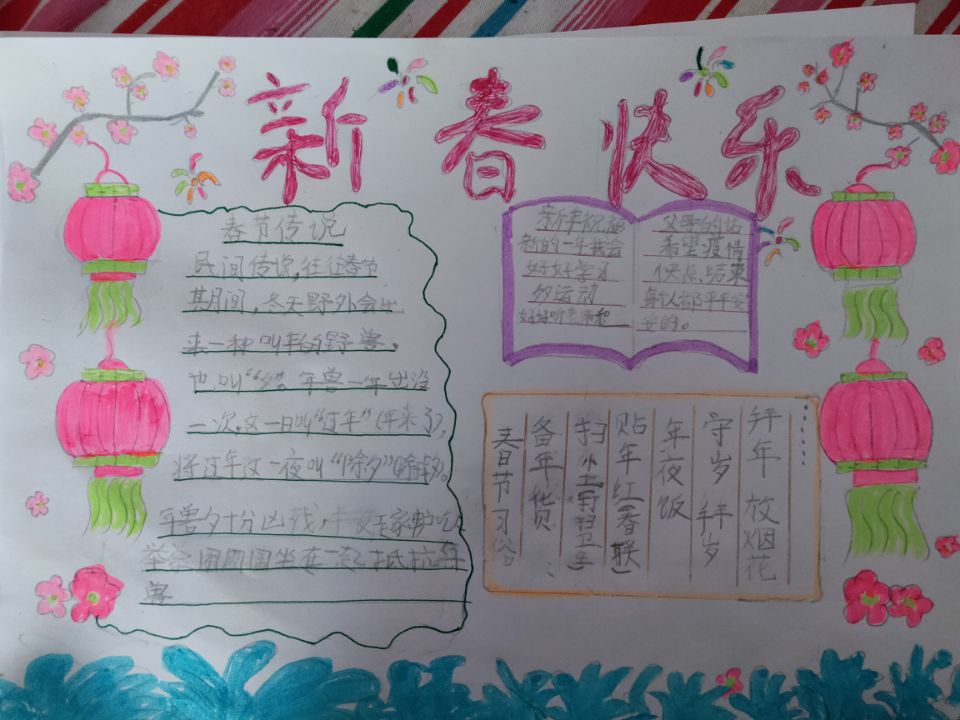 新春快乐
春节传说
民间传说,往往春节
其月间,冬天野外会出
来一种叫年的野兽。
也叫“夕”。年兽一年出没
一次,这一日叫“过年”(年来了),
将过年这一夜叫“除夕”
年兽夕十分凶残,
举 团圆围坐在一起抵抗年
兽
新年祝愿
新的一年我会
好好学习
多运动
好好听老师和
父母的话
希望疫情
快点结束
每个人都平平安
安的。
春日节习俗
备年货
扫尘
贴年红(春联)
年夜饭
守岁
拜年 放烟花
……